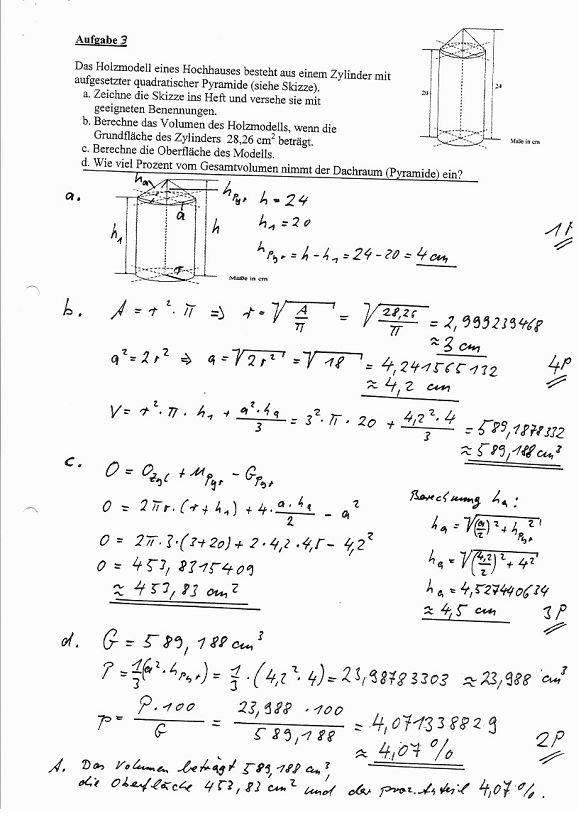 Aufgabe 3
Das Holzmodell eines Hochhauses besteht aus einem Zylinder mit
aufgesetzter quadratischer Pyramide (siehe Skizze).
a. Zeichne die Skizze ins Heft und versehe sie mit
geeigneten Benennungen.
b. Berechne das Volumen des Holzmodells, wenn die
Grundfläche des Zylinders 28,26 cm² beträgt.
c. Berechne die Oberfläche des Modells.
d. Wie viel Prozent vom Gesamtvolumen nimmt der Dachraum (Pyramide) ein?
20
24
Maße in cm
a.
ha
a
h1
h
r
Maße in cm
hPyr
h = 24
h1 = 20
hPyr = h - h1 = 24 - 20 = 4 cm
1P
b. A = r² · π ⇒ r = √(A/π) = √(28,26/π) = 2,999239468
≈ 3 cm
a² = 2r² ⇒ a = √(2r²) = √18 = 4,241565132
≈ 4,2 cm
4P
V = r² · π · h1 + a²·ha/3 = 3² · π · 20 + 4,2²·4/3 = 589,1878332
≈ 589,188 cm³
c. O = OZyl + MPyr - GPyr
O = 2πr · (r + h1) + 4 · a·ha/2 - a²
O = 2π · 3 · (3+20) + 2 · 4,2 · 4,5 - 4,2²
O = 453,8315409
≈ 453,83 cm²
Berechnung ha:
ha = √((a/2)² + hPyr²)
ha = √((4,2/2)² + 4²)
ha = 4,527440634
≈ 4,5 cm
3P
d. G = 589,188 cm³
P = 1/3 (a² · hPyr) = 1/3 · (4,2² · 4) = 23,98783303 ≈ 23,988 cm³
p = P · 100/G = 23,988 · 100/589,188 = 4,071338829
≈ 4,07 %
2P
A. Das Volumen beträgt 589,188 cm³,
die Oberfläche 453,83 cm² und der proz. Anteil 4,07 %.